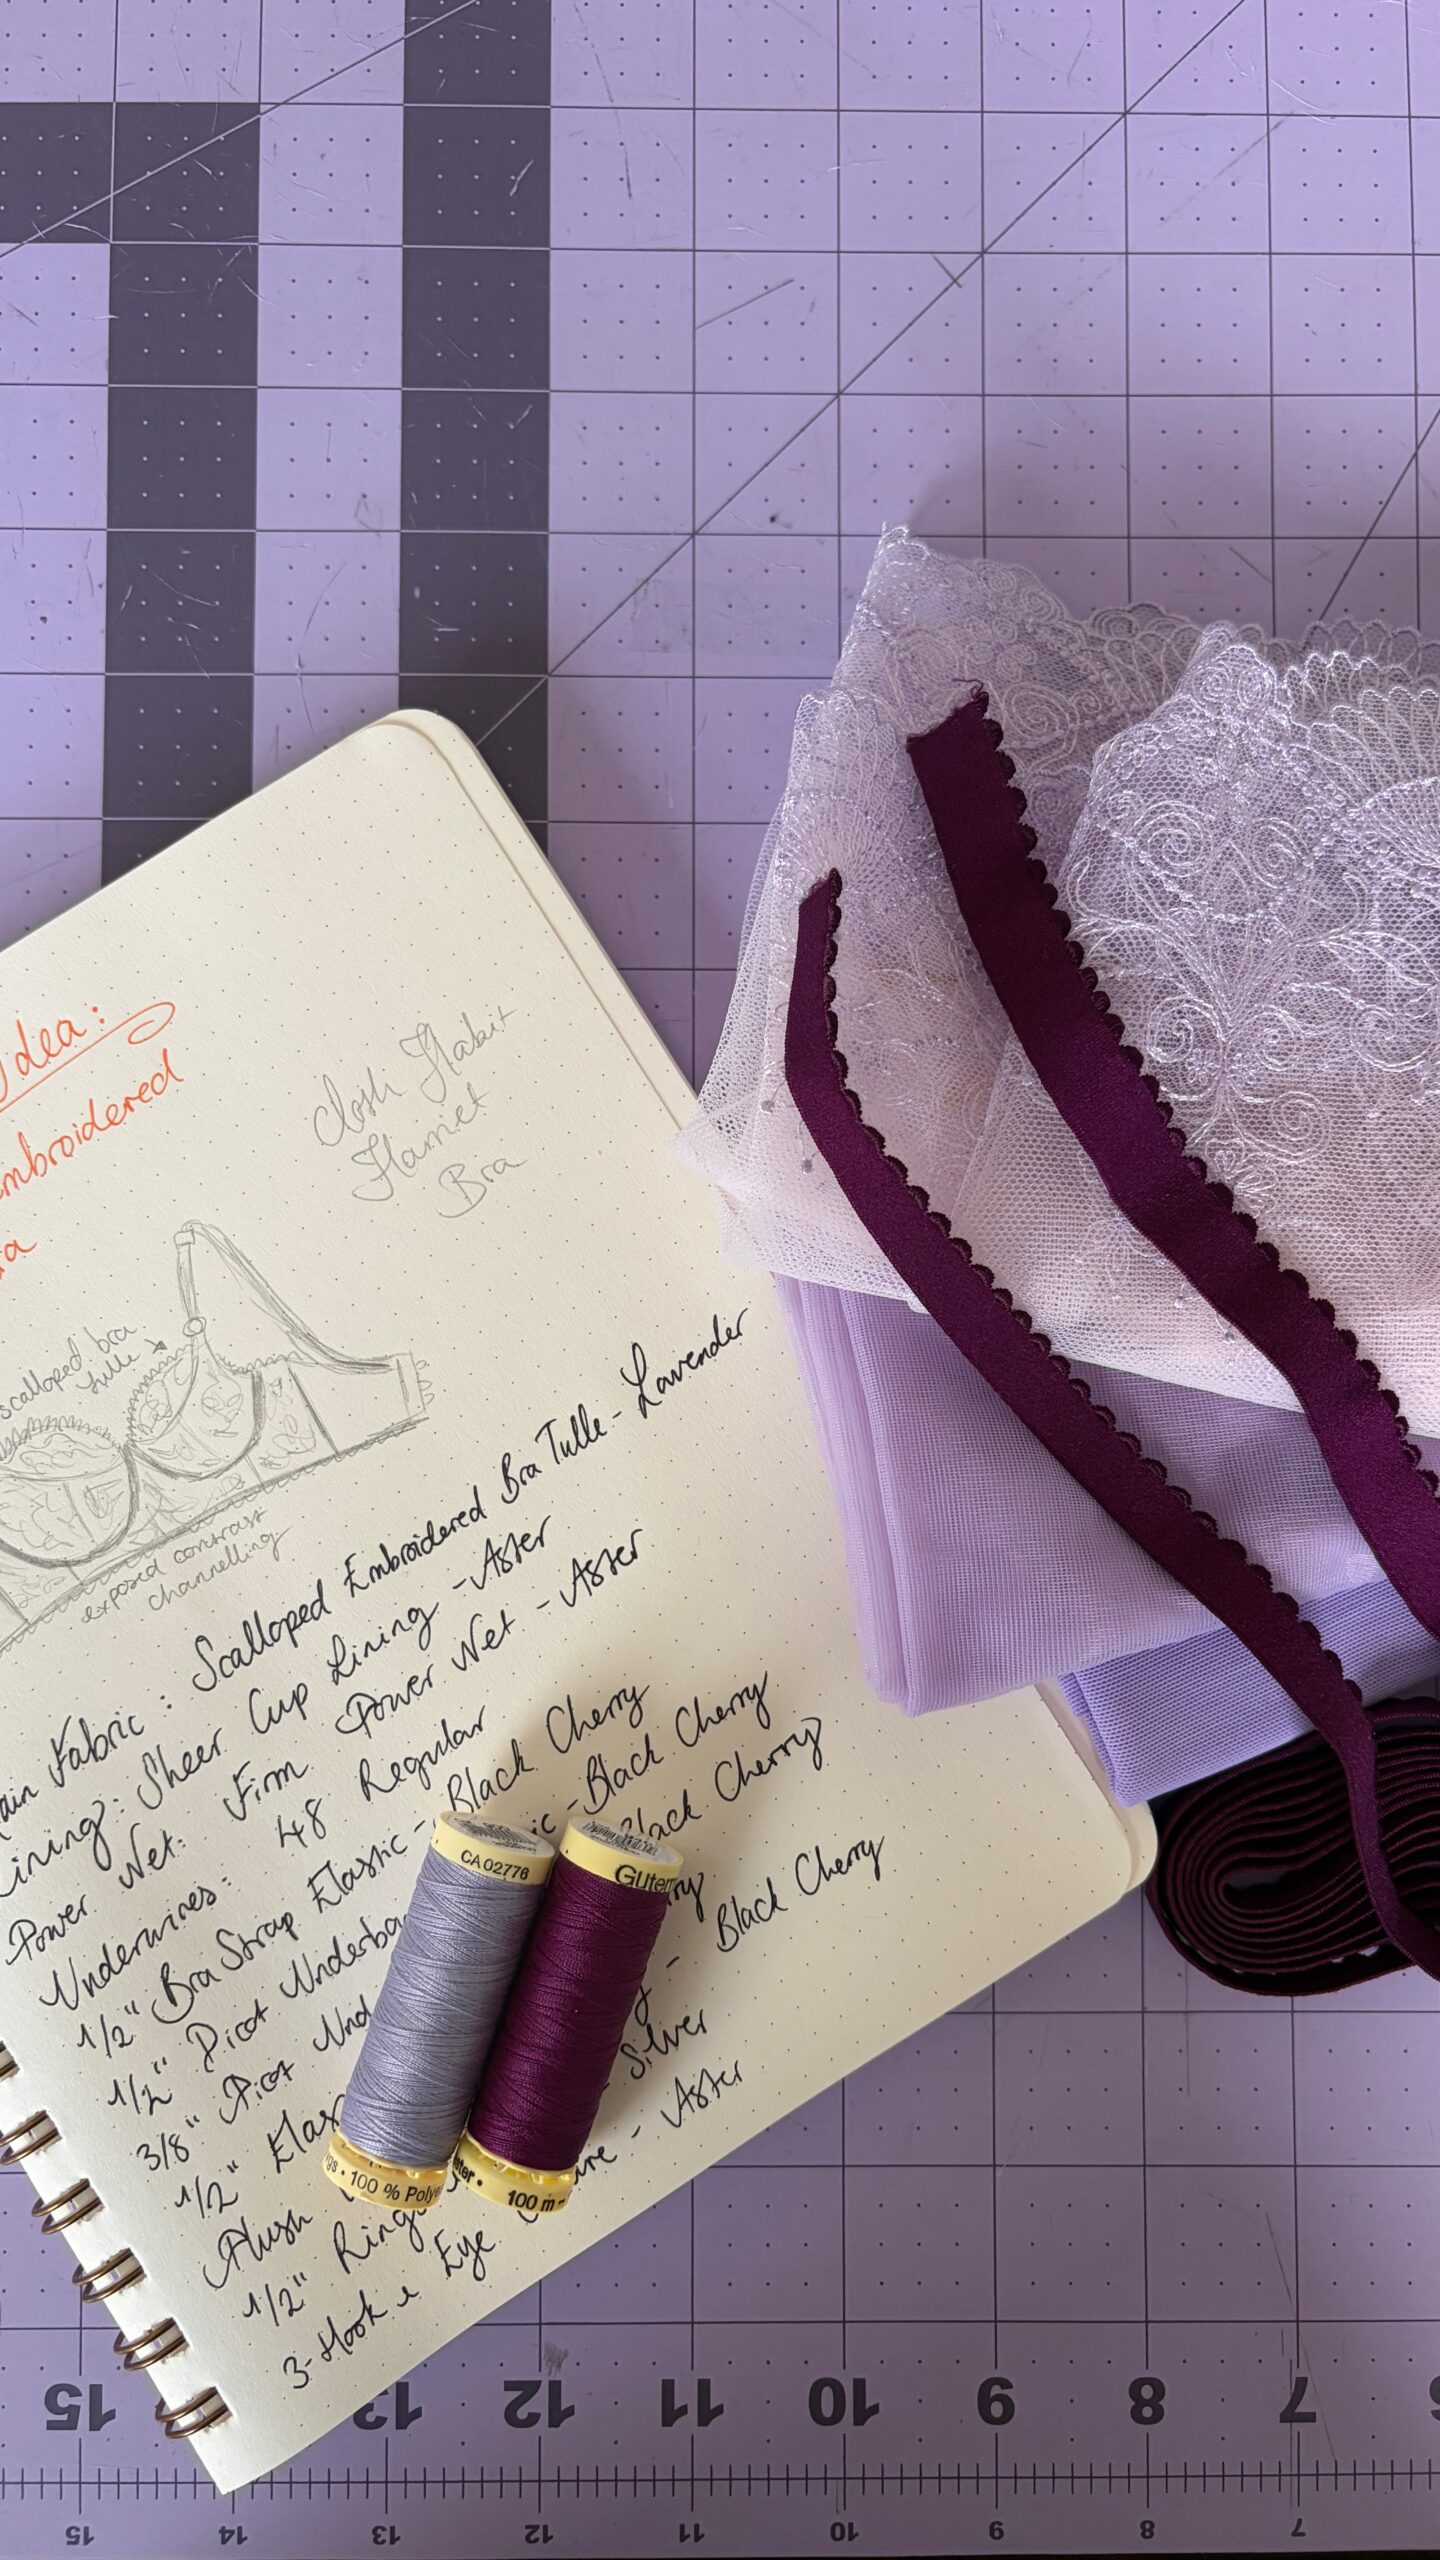 Idea:
Embroidered
Cloth Habit
Harriet
Bra
scalloped bra
tulle
exposed contrast
channelling
Main Fabric: Scalloped Embroidered Bra Tulle - Lavender
Lining: Sheer Cup Lining - Aster
Power Net: Firm Power Net - Aster
Underwires: 48 Regular
1/2" Bra Strap Elastic - Black Cherry
1/2" Picot - Black Cherry
3/8" Picot Black Cherry
1/2"
Plush - Black Cherry
1/2" Silver
3-Hook & Eye - Aster
CA02776
100 % Polye
100 m
15 13 12 11 10 9 8 7
15 14 13 12 11 10 9 8 7